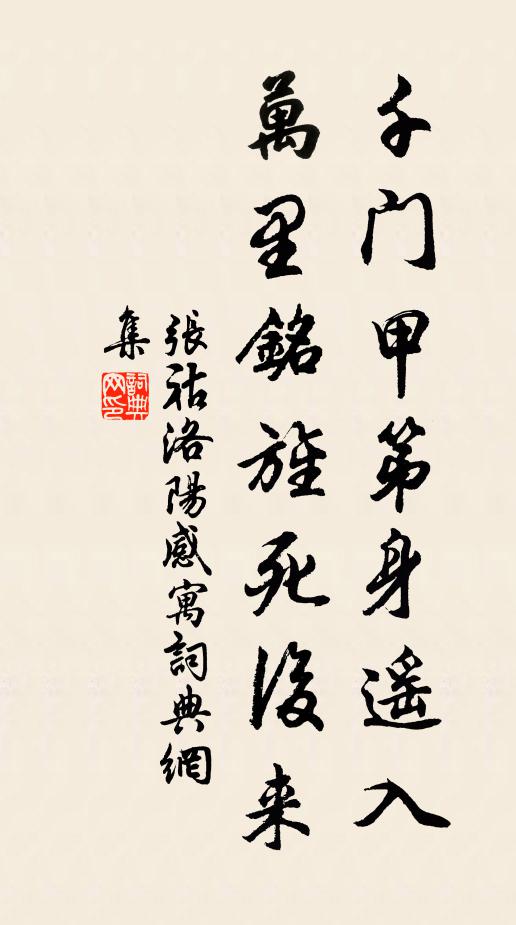 千门甲第身遥入
萬里銘旌死後来
張祜洛陽感寓詞典網
集
詞典网印